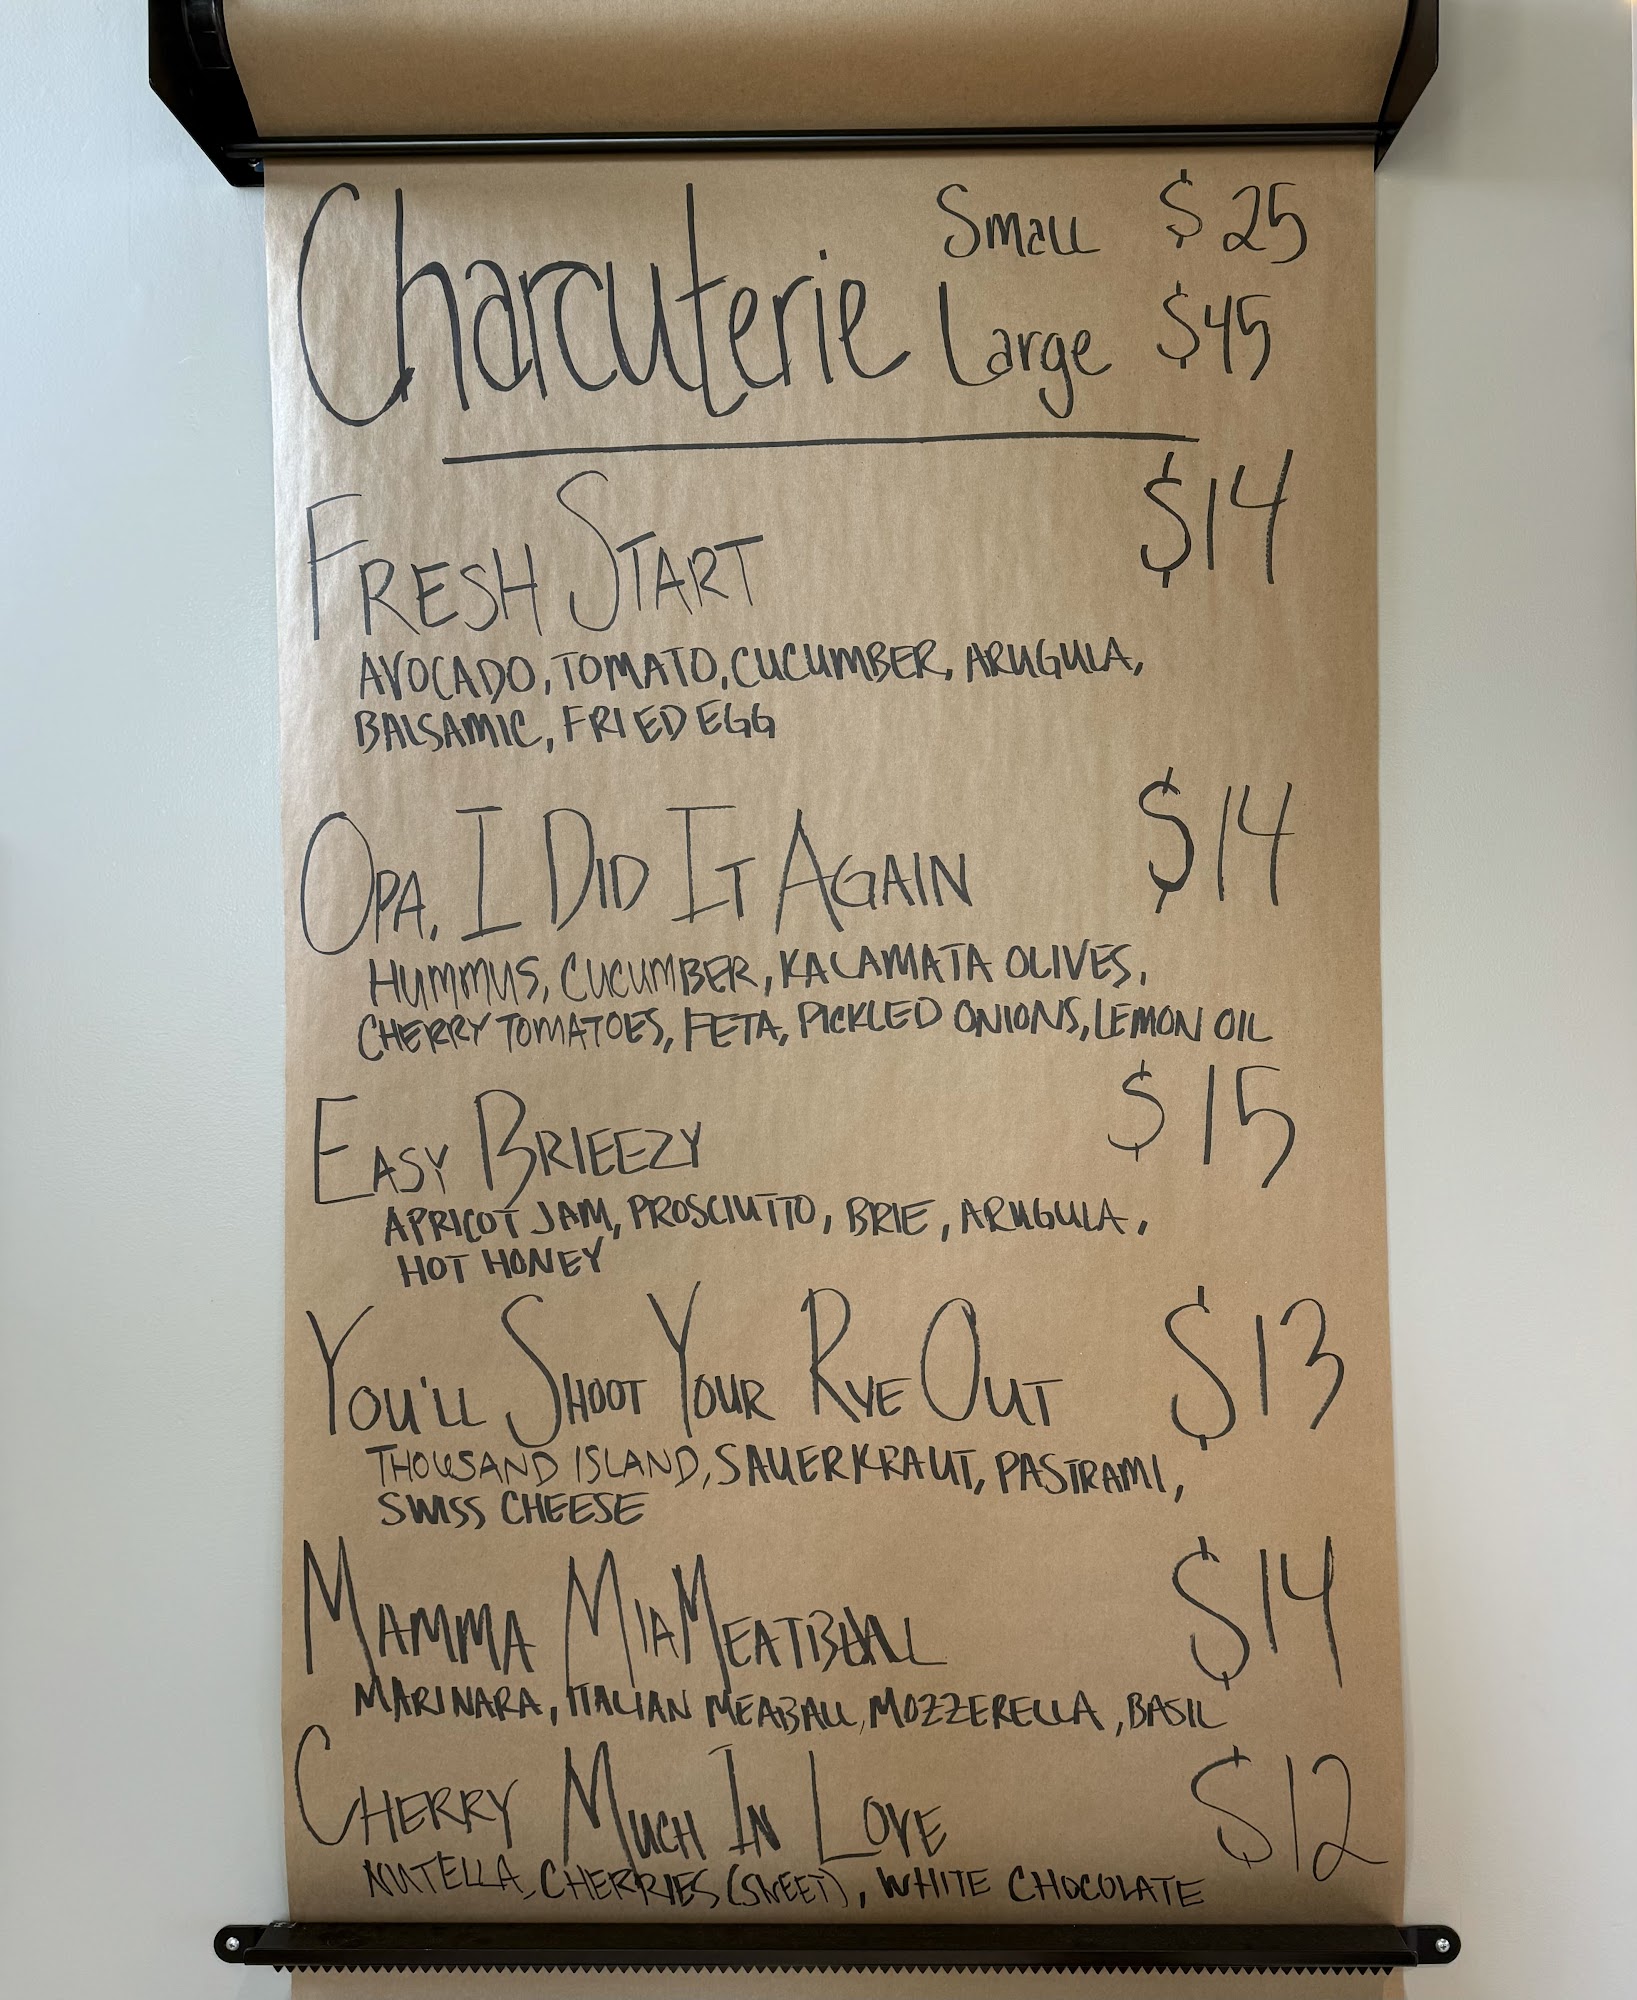 Charcuterie Small $25
Large $45
FRESH START $14
AVOCADO, TOMATO, CUCUMBER, ARUGULA,
BALSAMIC, FRIED EGG
OPA, I DID IT AGAIN $14
HUMMUS, CUCUMBER, KALAMATA OLIVES,
CHERRY TOMATOES, FETA, PICKLED ONIONS, LEMON OIL
EASY BRIEEZY $15
APRICOT JAM, PROSCIUTTO, BRIE, ARUGULA,
HOT HONEY
YOU'LL SHOOT YOUR RYE OUT $13
THOUSAND ISLAND, SAUERKRAUT, PASTRAMI,
SWISS CHEESE
MAMMA MIA MEATBALL $14
MARINARA, ITALIAN MEABALL, MOZZERELLA, BASIL
CHERRY MUCH IN LOVE $12
NUTELLA, CHERRIES (SWEET), WHITE CHOCOLATE